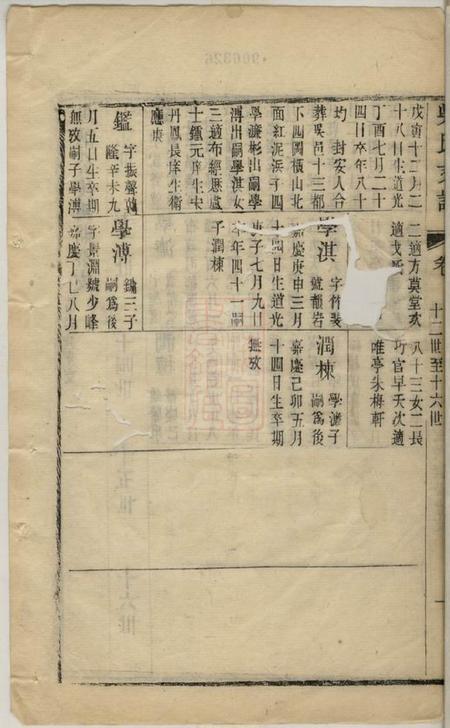 吳氏支譜
卷
十二世至十六世
戊寅十二月二
十八日生道光
丁酉七月二十
四日卒年八十
封安人合
葬吳邑十三都
下四圖橫山北
面紅泥浜子四
學濂彬出嗣學
溥出嗣學淇女
三適布經歷盧
士鏸元庠生宋
丹鳳長庠生衛
應庚
鑑
字振聲
隆辛未九
月五日生卒期
無攷嗣子學溥
二適方莫堂次
適戈
學淇
字竹
號韻岩
嘉慶庚申三月
十四日生道光
庚子七月九日
卒年四十一嗣
子潤棟
學溥
鏞三子
嗣爲後
字景淵號少峰
嘉慶丁巳八月
八十三女二長
巧官早夭次適
唯亭朱梅軒
潤棟
學濂子
嗣爲後
嘉慶己卯五月
十四日生卒期
無攷